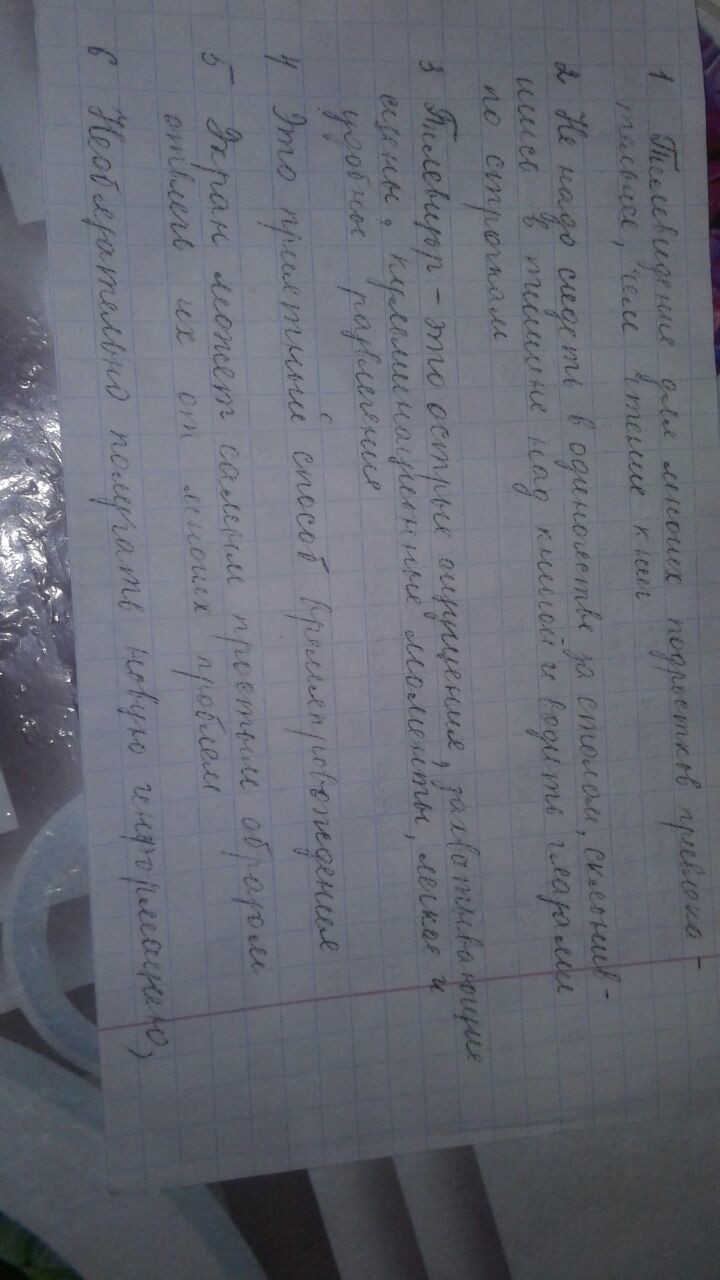 1 Телевидение для многих подростков привлека-
тельнее, чем чтение книг
2 Не надо сидеть в одиночестве за столом, склонив-
шись в тишине над книгой и водить глазами
по строчкам
3 Телевизор - это острые ощущения, захватывающие
сцены, кульминационные моменты, легкое и
удобное развлечение
4 Это приятный способ времяпровождения
5 Экран может самым простым образом
отвлечь их от многих проблем
6 Необязательно получать новую информацию,